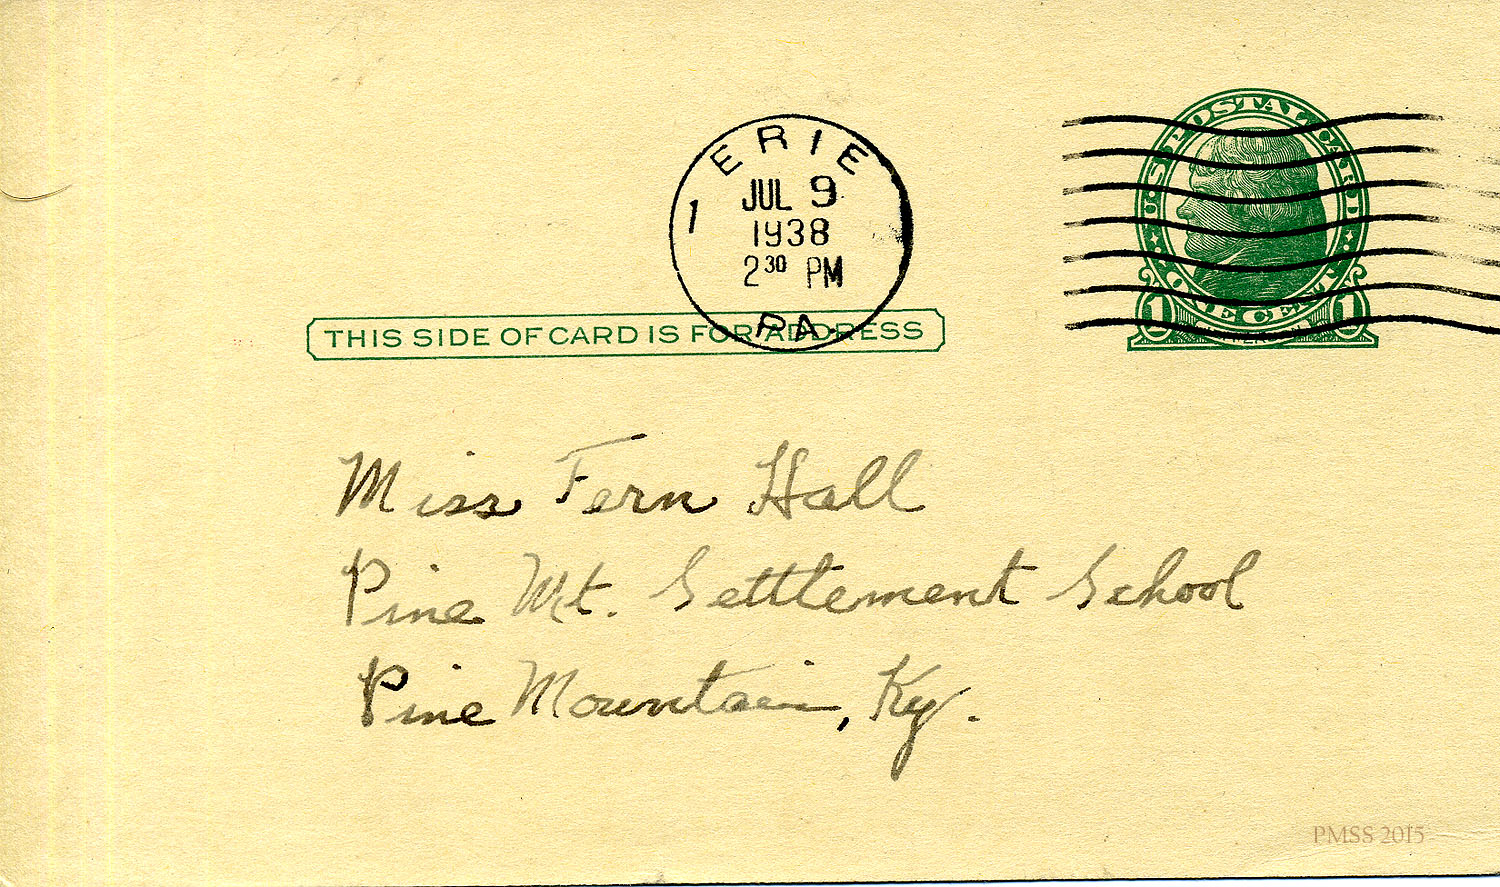 U·S·POSTAL CARD
ERIE
JUL 9
1
1938
2 30 PM
PA.
ONE CENT
1 1
JEFFERSON
THIS SIDE OF CARD IS FOR ADDRESS
Miss Fern Hall
Pine Mt. Settlement School
Pine Mountain, Ky.
PMSS 2015